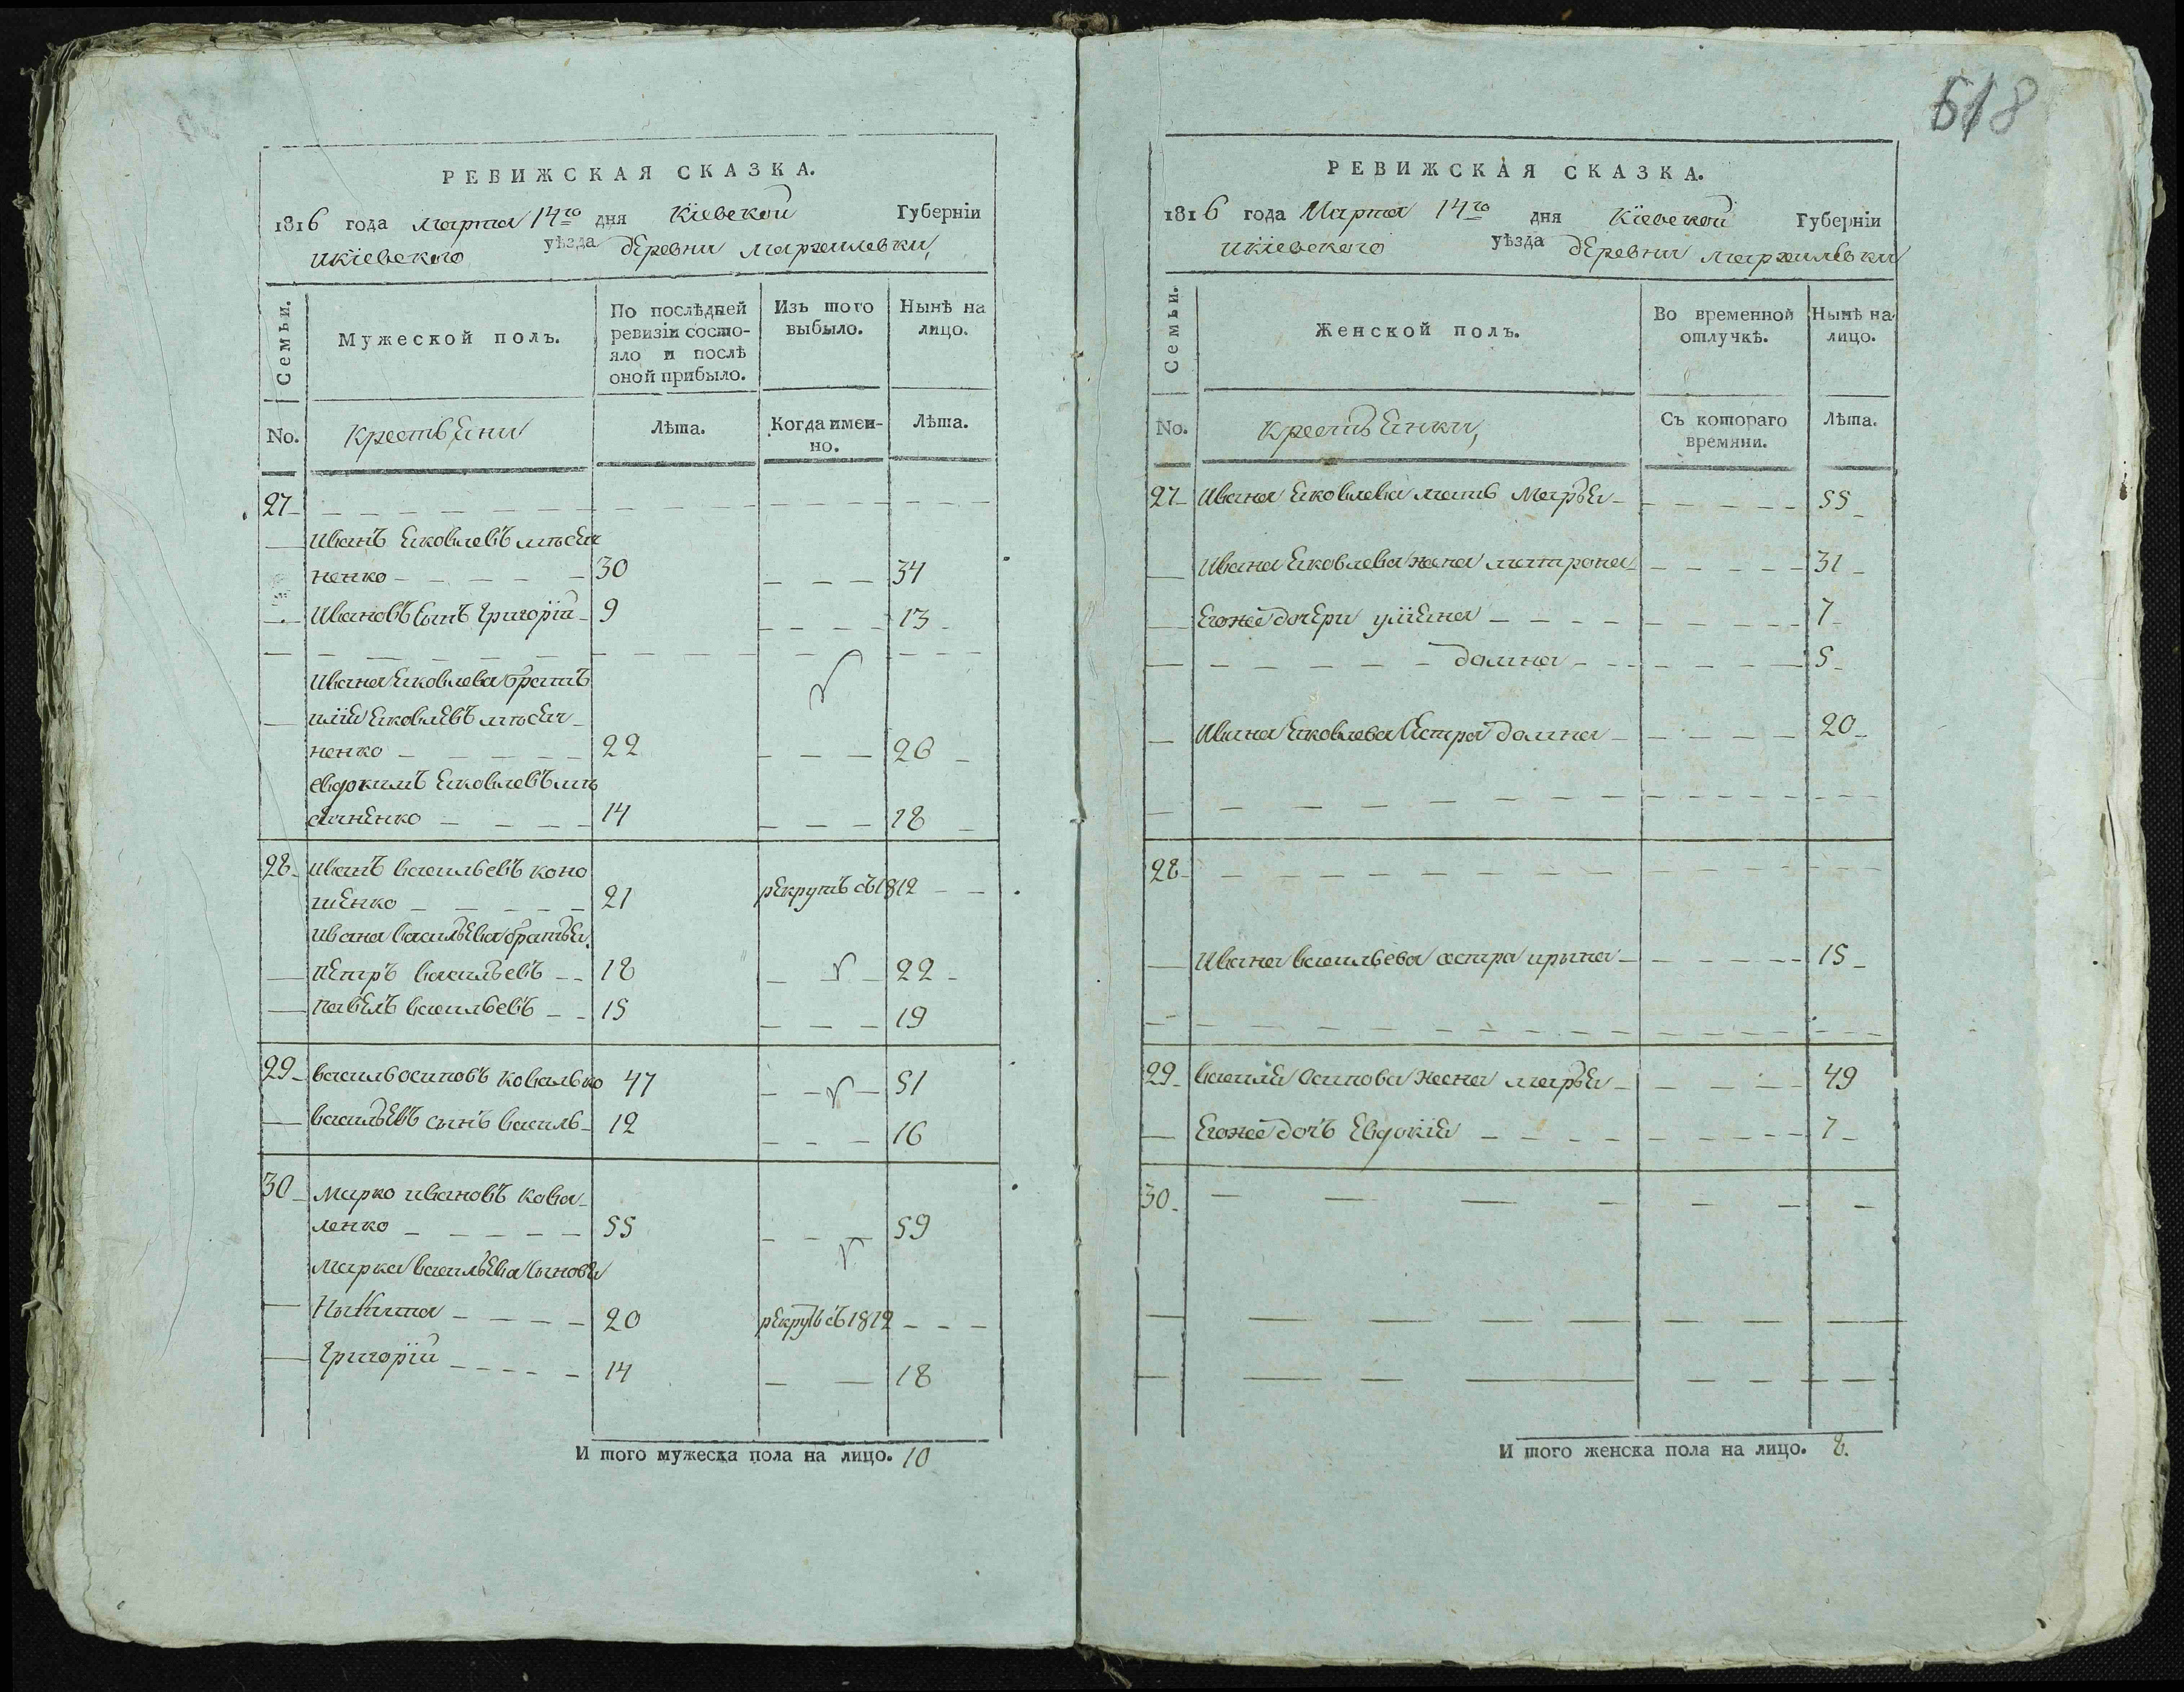 618
РЕВИЖСКАЯ СКАЗКА.
1816 года марта 14го дня Кіевской Губерніи
икіевского уѣзда деревни
Семьи.
Мужеской полъ.
По послѣдней ревизіи состо-
яло и послѣ
оной прибыло.
Изъ того
выбыло.
Нынѣ на
лицо.
No.
крестьяни
Лѣта.
Когда имен-
но.
Лѣта.
27
иванъ яковлевъ мѣся
ненко 30 34
Ивановъ сынъ григорій 9 13
ивана яковлева братъ
илія яковлевъ мѣся
ненко 22 26
евдокимъ яковлевъ мѣ
сяненко 14 18
28 иванъ васильевъ коно
шенко 21 рекрутъ въ 1812
ивана васильева братья
петръ васильевъ 18 22
павелъ васильевъ 15 19
29 василь осиповъ ковалько 47 51
васильевъ сынъ василь 12 16
30 марко ивановъ кова
ленко 55 59
марка васильева сыновя
Ныкита 20 рекрутъ въ 1812
григорій 14 18
И того мужеска пола на лицо. 10
РЕВИЖСКАЯ СКАЗКА.
1816 года Марта 14го дня Кіевской Губерніи
икіевского уѣзда деревни
Семьи.
Женской полъ.
Во временной
отлучкѣ.
Нынѣ на
лицо.
No.
крестьянки,
Съ котораго
времяни.
Лѣта.
27 Ивана яковлева мать Марья 55
Ивана яковлева жена матрона 31
Егоже дочери уліяна 7
домна 5
Ивана яковлева сестра домна 20
28
Ивана васильева сестра ирына 15
29 василя осипова жена марья 49
Егоже дочъ Евдокія 7
30
И того женска пола на лицо. 8.